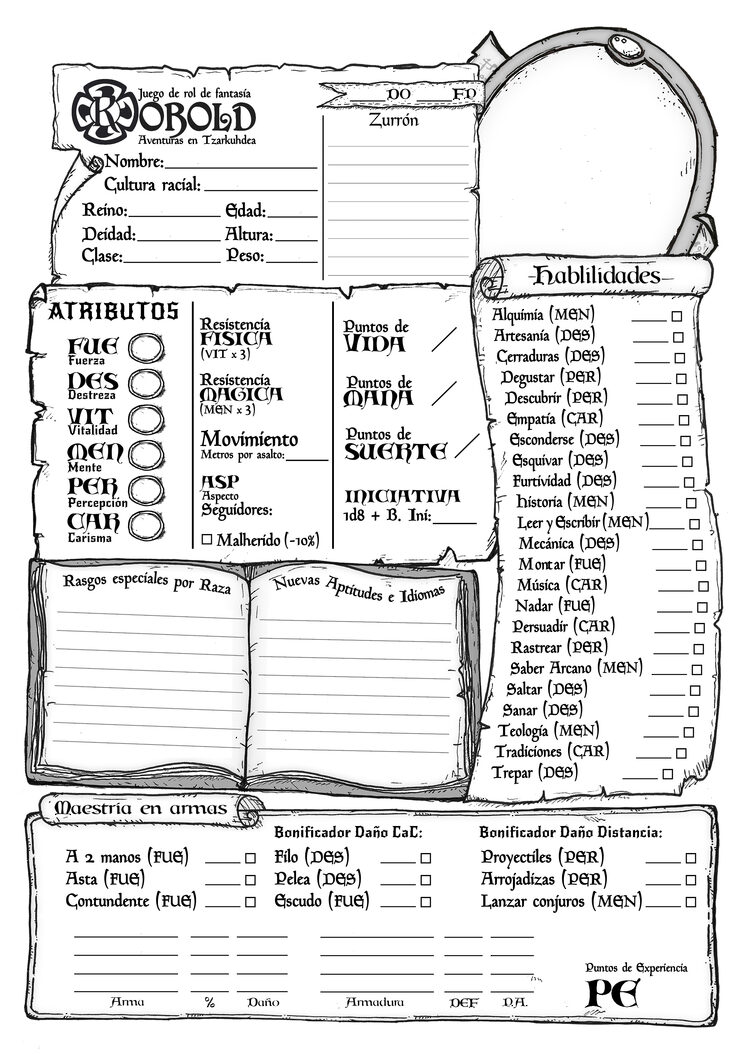 Juego de rol de fantasía
KOBOLD
Aventuras en Tzarkuhdea
Nombre:
Cultura racial:
Reino: Edad:
Deidad: Altura:
Clase: Peso:
DO
Zurrón
ATRIBUTOS
FUE
Fuerza
DES
Destreza
VIT
Vitalidad
MEN
Mente
PER
Percepción
CAR
Carisma
Resistencia
FISICA
(VIT x 3)
Resistencia
MAGICA
(MEN x 3)
Movimiento
Metros por asalto:
ASP
Aspecto
Seguidores:
Malherido (-10%)
Puntos de
VIDA /
Puntos de
MANA /
Puntos de
SUERTE /
INICIATIVA
1d8 + B. Ini:
Hablilidades
Alquimia (MEN)
Artesanía (DES)
Cerraduras (DES)
Degustar (PER)
Descubrir (PER)
Empatía (CAR)
Esconderse (DES)
Esquivar (DES)
Furtividad (DES)
Historia (MEN)
Leer y Escribir (MEN)
Mecánica (DES)
Montar (FUE)
Música (CAR)
Nadar (FUE)
Persuadir (CAR)
Rastrear (PER)
Saber Arcano (MEN)
Saltar (DES)
Sanar (DES)
Teología (MEN)
Tradiciones (CAR)
Trepar (DES)
Rasgos especiales por Raza
Nuevas Aptitudes e Idiomas
Maestria en armas
A 2 manos (FUE)
Asta (FUE)
Contundente (FUE)
Bonificador Daño CaC:
Filo (DES)
Pelea (DES)
Escudo (FUE)
Bonificador Daño Distancia:
Proyectiles (PER)
Arrojadizas (PER)
Lanzar conjuros (MEN)
Arma % Daño Armadura DEF P.A.
Puntos de Experiencia
PE